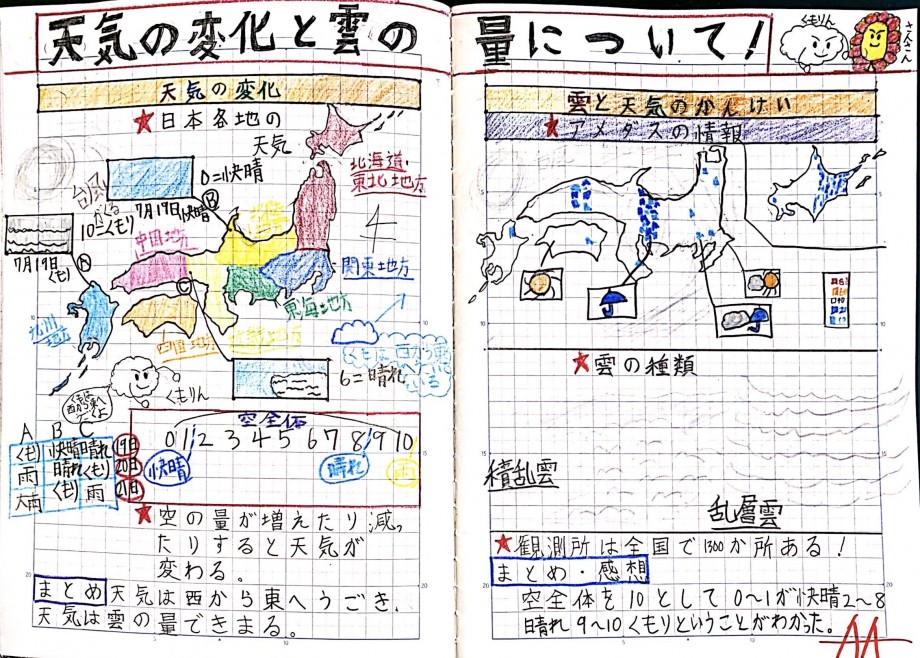 天気の変化と雲の
量について!
くもりん
天気の変化
★日本各地の
天気
北海道・
東北地方
0=快晴
7月19日快晴
B
台風
がくる
10=くもり
7月19日
くもり
A
中国地方
C
関東地方
東海地方
四国地方
九州
地方
6=晴れ
くもりん
くもは
西から東へ
空全体
0 1 2 3 4 5 6 7 8 9 10
快晴
晴れ
雨
A B C
くもり 快晴 晴れ 19日
雨 晴れ くもり 20日
大雨 くもり 雨 21日
★空の量が増えたり減っ
たりすると天気が
変わる。
まとめ 天気は西から東へうごき、
天気は雲の量できまる。
雲と天気のかんけい
★アメダスの情報
★雲の種類
積乱雲
乱層雲
★観測所は全国で1300か所ある!
まとめ・感想
空全体を10として0〜1が快晴2〜8
晴れ9〜10くもりということがわかった。
AA